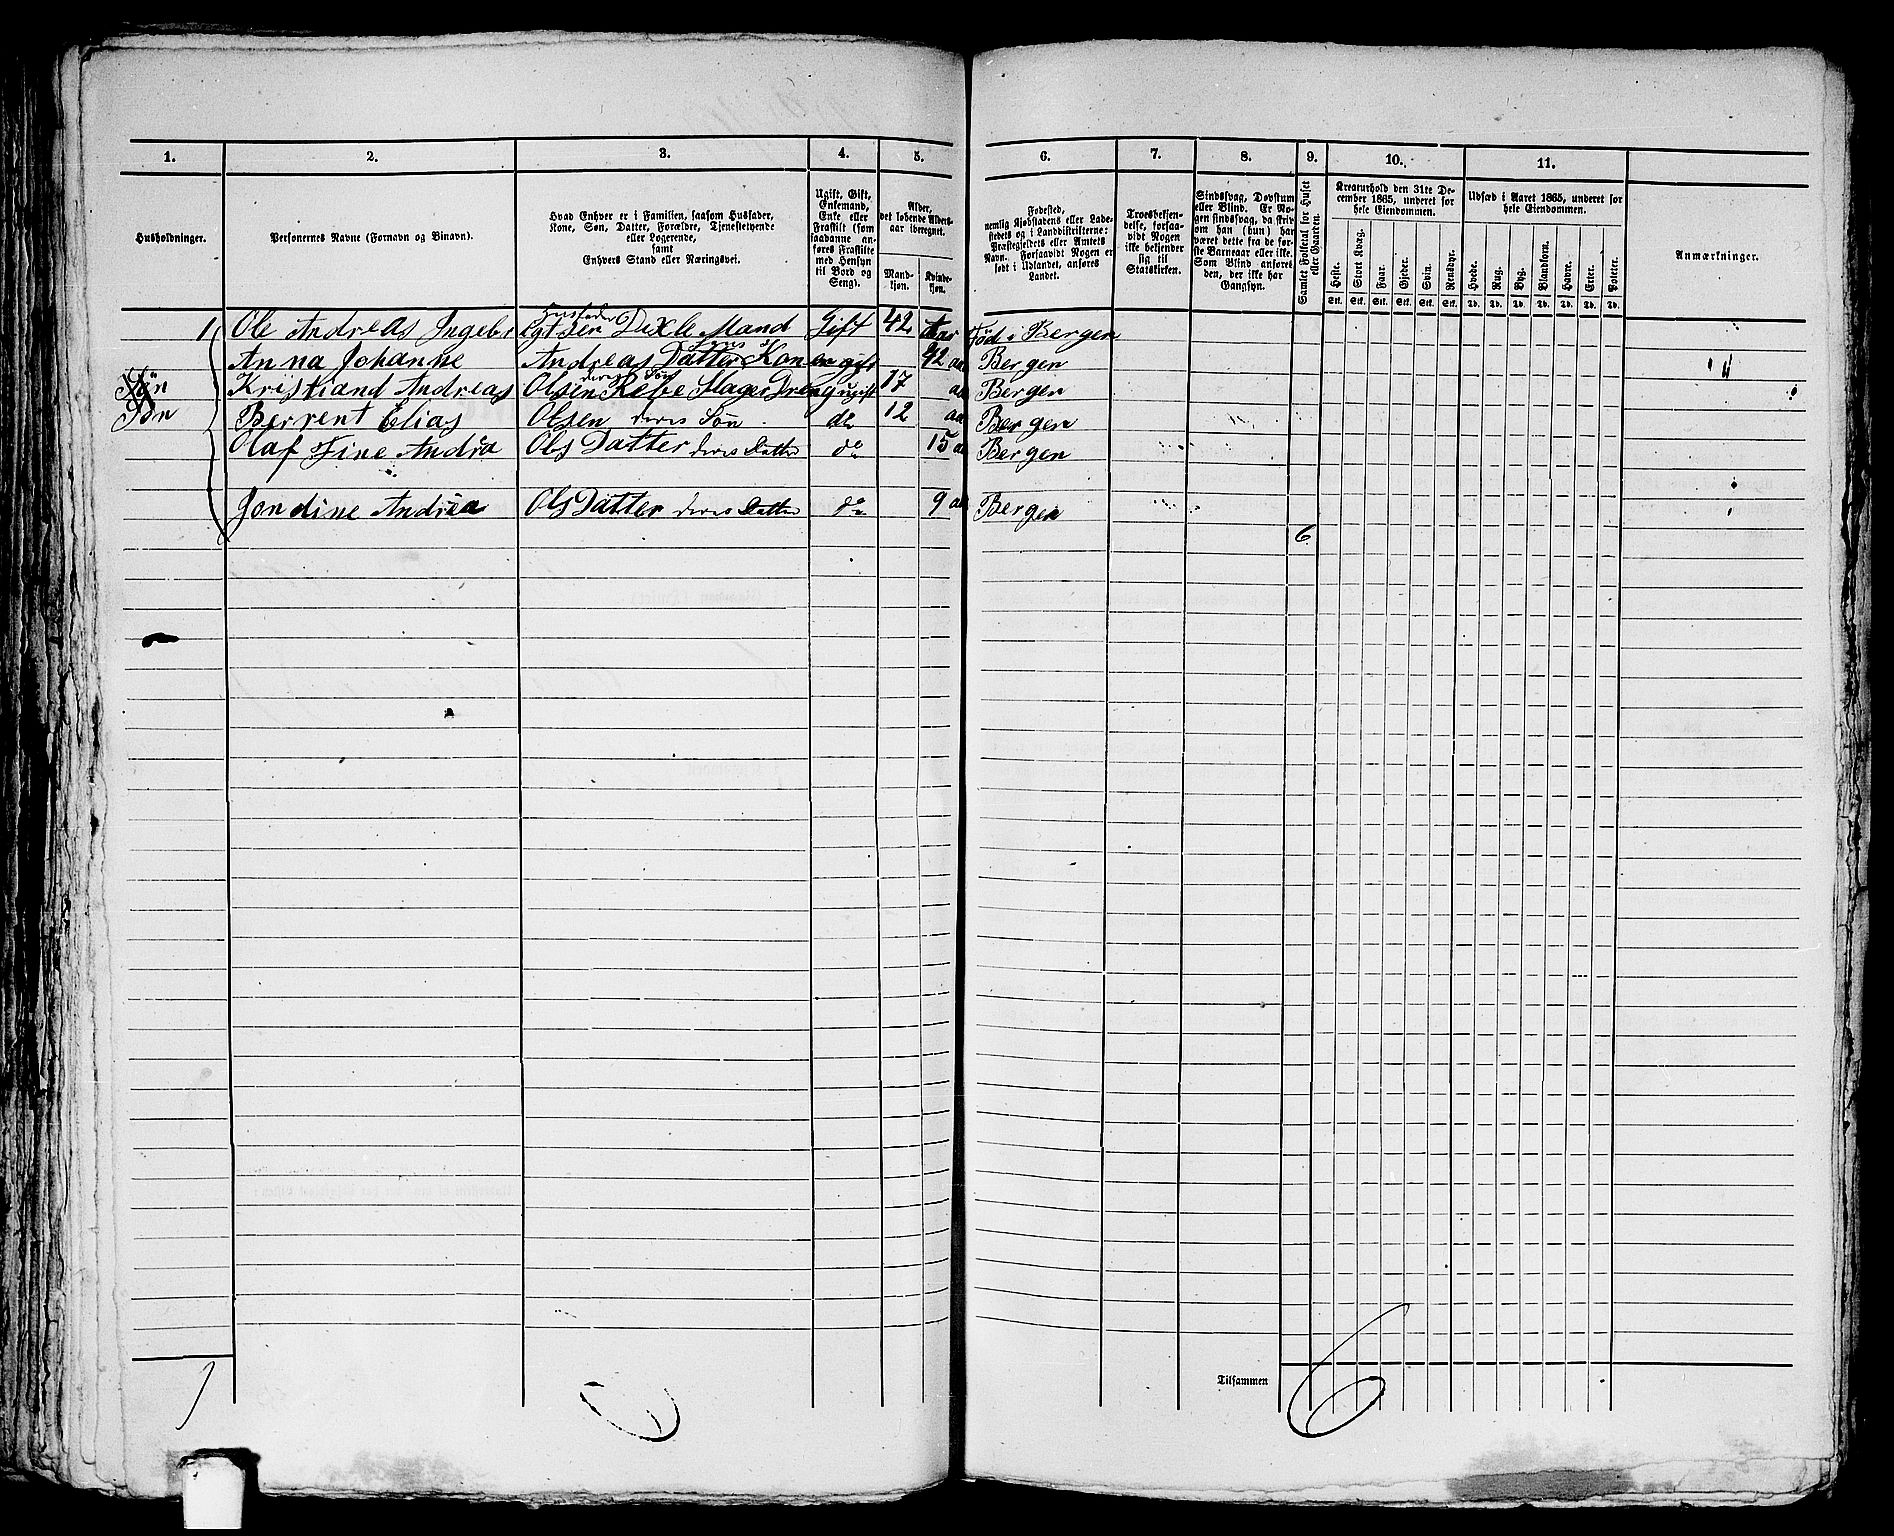 1.
2.
3.
4.
5.
6.
7.
8.
9.
10.
11.
Husholdninger.
Personernes Navne (Fornavn og Binavn).
Hvad Enhver er i Familien, saasom Husfader,
Kone, Søn, Datter, Forældre, Tjenestetyende
eller Logerende,
samt
Enhvers Stand eller Næringsvei.
Ugift, Gift,
Enkemand,
Enke eller
Fraskilt (som
saadanne an-
føres Fraskilte
med Hensyn
til Bord og
Seng).
Alder,
det løbende Alders-
aar iberegnet.
Mand-
kjøn.
Kvinde-
kjøn.
Fødested,
nemlig Kjøbstadens eller Lade-
stedets og i Landdistrikterne:
Præstegjeldets eller Amtets
Navn. Forsaavidt Nogen er
født i Udlandet, anføres
Landet.
Troesbekjen-
delse, forsaa-
vidt Nogen
ikke bekjender
sig til
Statskirken.
Sindssvag, Døvstum
eller Blind. Er No-
gen sindssvag, da skriv
om han (hun) har
været dette fra de før-
ste Barneaar eller ikke.
Som Blind anføres
den, der ikke har
Gangsyn.
Samlet Folketal for Huset
eller Gaarden.
Kreaturhold den 31te De-
cember 1865, underet for
hele Eiendommen.
Heste.
Stort Kvæg.
Faar.
Gjeder.
Svin.
Rensdyr.
Stk. Stk. Stk. Stk. Stk. Stk.
Udsæd i Aaret 1865, underet for
hele Eiendommen.
Hvede.
Rug.
Byg.
Blandkorn.
Havre.
Erter.
Poteter.
Td. Td. Td. Td. Td. Td. Td.
Anmærkninger.
Husfader
1 Ole Andreas Ingebrigtsen Mand Gift 42 Aar Fød i Bergen
Anna Johanne Andreas Datter Kone gift 42 aar Bergen
deres Søn
Søn Kristiand Andreas Olsen Dreng ugift 17 aa Bergen
Søn Berrent Elias Olsen deres Søn do 12 aa Bergen
Olaf Fine Andrea Ols Datter deres Datter do 15 aa Bergen
Jondine Andrea Ols Datter deres Datter do 9 aa Bergen
6
Tilsammen 6
1